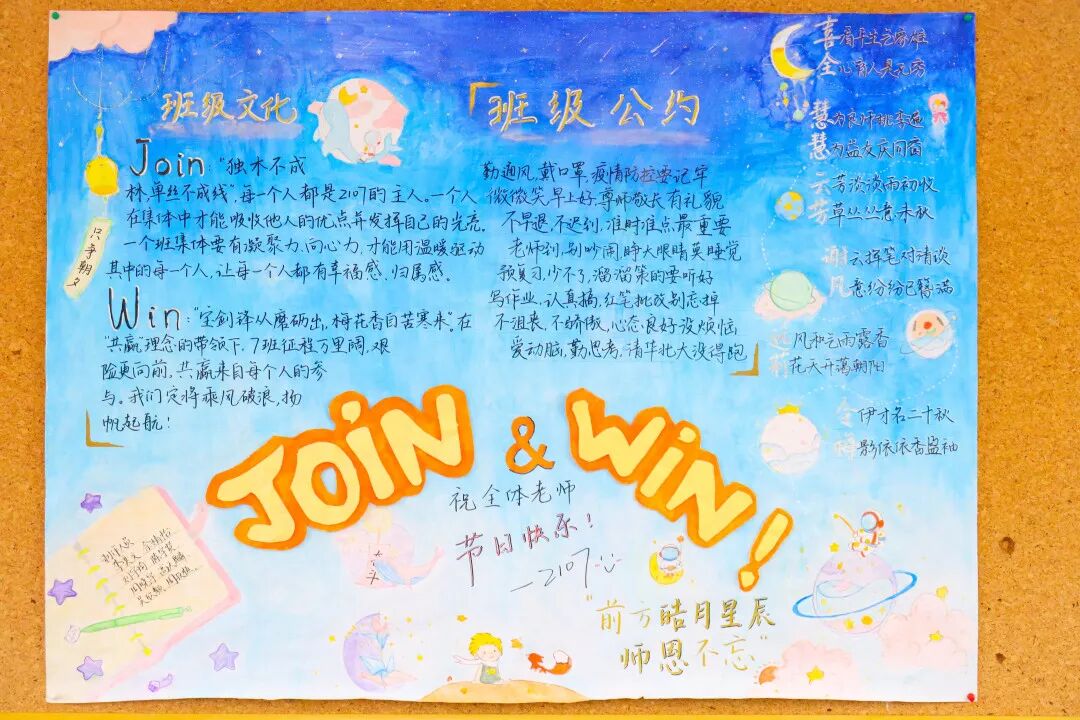 班级文化
Join:"独木不成
林,单丝不成线",每个人都是2107的主人。一个人
在集体中才能吸收他人的优点并发挥自己的光亮.
一个班集体要有凝聚力,向心力,才能用温暖驱动
其中的每一个人,让每一个人都有幸福感,归属感。
Win:"宝剑锋从磨砺出,梅花香自苦寒来",在
"共赢"理念的带领下,7班征程万里阔,艰
险更向前,共赢来自每个人的参
与。我们定将乘风破浪,扬
帆起航!
只争朝夕
「班级公约
勤通风,戴口罩,疫情防控要记牢
微微笑,早上好,尊师敬长有礼貌
不早退,不迟到,准时准点最重要
老师到,别吵闹,睁大眼睛莫睡觉
预复习,少不了,溜溜策的要听好
写作业,认真搞,红笔批改别忘掉
不沮丧,不骄傲,心态良好没烦恼
爱动脑,勤思考,清华北大没得跑
喜看平生之豪雄
全心育人具无穷
慧为良师桃李遍
慧为益友庆同窗
云芳淡淡雨初仪
芳草丛丛意未秋
谢云挥笔对清谈
凤意纷纷已
风和云雨露香
莉花天开蔼朝阳
伊才名二十秋
影依依香盈袖
JOiN & WiN!
祝全体老师
节日快乐!
—2107
"前方皓月星辰
师恩不忘"